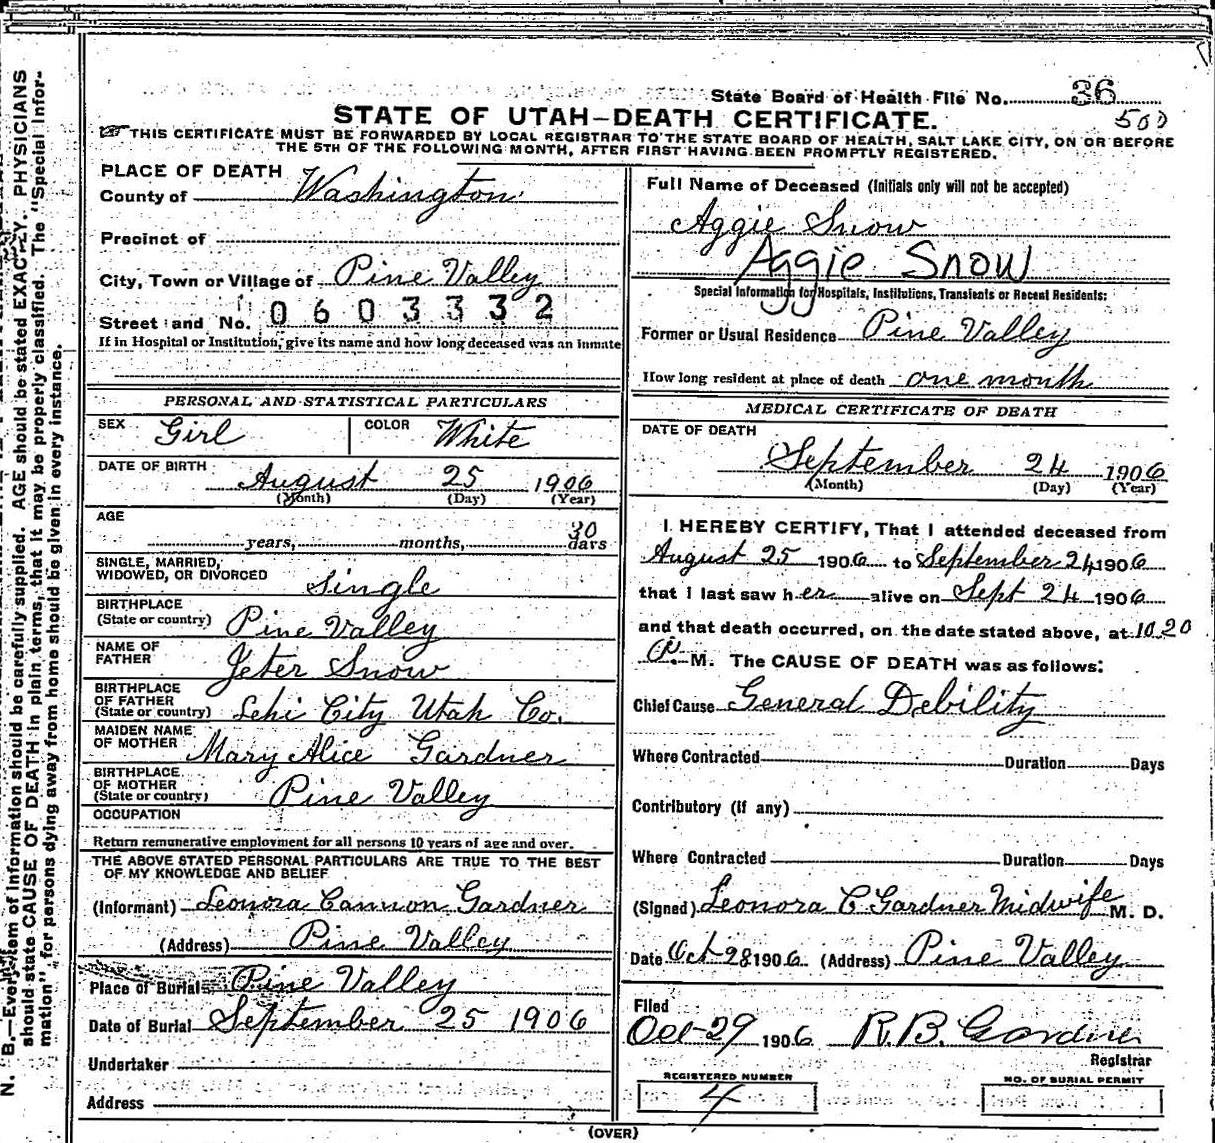 State Board of Health File No. 36
STATE OF UTAH-DEATH CERTIFICATE. 500
THIS CERTIFICATE MUST BE FORWARDED BY LOCAL REGISTRAR TO THE STATE BOARD OF HEALTH, SALT LAKE CITY, ON OR BEFORE
THE 5TH OF THE FOLLOWING MONTH, AFTER FIRST HAVING BEEN PROMPTLY REGISTERED.
PLACE OF DEATH
County of Washington
Precinct of
City, Town or Village of Pine Valley
0603332
Street and No.
If in Hospital or Institution, give its name and how long deceased was an inmate
PERSONAL AND STATISTICAL PARTICULARS
SEX Girl COLOR White
DATE OF BIRTH August 25 1906
(Month) (Day) (Year)
AGE
years, months, 30 days
SINGLE, MARRIED,
WIDOWED, OR DIVORCED Single
BIRTHPLACE
(State or country) Pine Valley
NAME OF
FATHER Jeter Snow
BIRTHPLACE
OF FATHER
(State or country) Lehi City Utah Co.
MAIDEN NAME
OF MOTHER Mary Alice Gardner
BIRTHPLACE
OF MOTHER
(State or country) Pine Valley
OCCUPATION
Return remunerative employment for all persons 10 years of age and over.
THE ABOVE STATED PERSONAL PARTICULARS ARE TRUE TO THE BEST
OF MY KNOWLEDGE AND BELIEF
(Informant) Leonora Cannon Gardner
(Address) Pine Valley
Place of Burial Pine Valley
Date of Burial September 25 1906
Undertaker
Address
Full Name of Deceased (Initials only will not be accepted)
Aggie Snow
Aggie Snow
Special Information for Hospitals, Institutions, Transients or Recent Residents:
Former or Usual Residence Pine Valley
How long resident at place of death one month
MEDICAL CERTIFICATE OF DEATH
DATE OF DEATH
September 24 1906
(Month) (Day) (Year)
I HEREBY CERTIFY, That I attended deceased from
August 25 1906 to September 24 1906
that I last saw her alive on Sept 24 1906
and that death occurred, on the date stated above, at 10.20
M. The CAUSE OF DEATH was as follows:
Chief Cause General Debility
Where Contracted Duration Days
Contributory (if any)
Where Contracted Duration Days
(Signed) Leonora C Gardner Midwife M. D.
Date Oct 28 1906 (Address) Pine Valley
Filed
Oct 29 1906 R. B. Gardner
Registrar
REGISTERED NUMBER NO. OF BURIAL PERMIT
4
(OVER)
N. B.—Every item of information should be carefully supplied. AGE should be stated EXACTLY. PHYSICIANS
should state CAUSE OF DEATH in plain terms, that it may be properly classified. The "Special Infor-
mation" for persons dying away from home should be given in every instance.